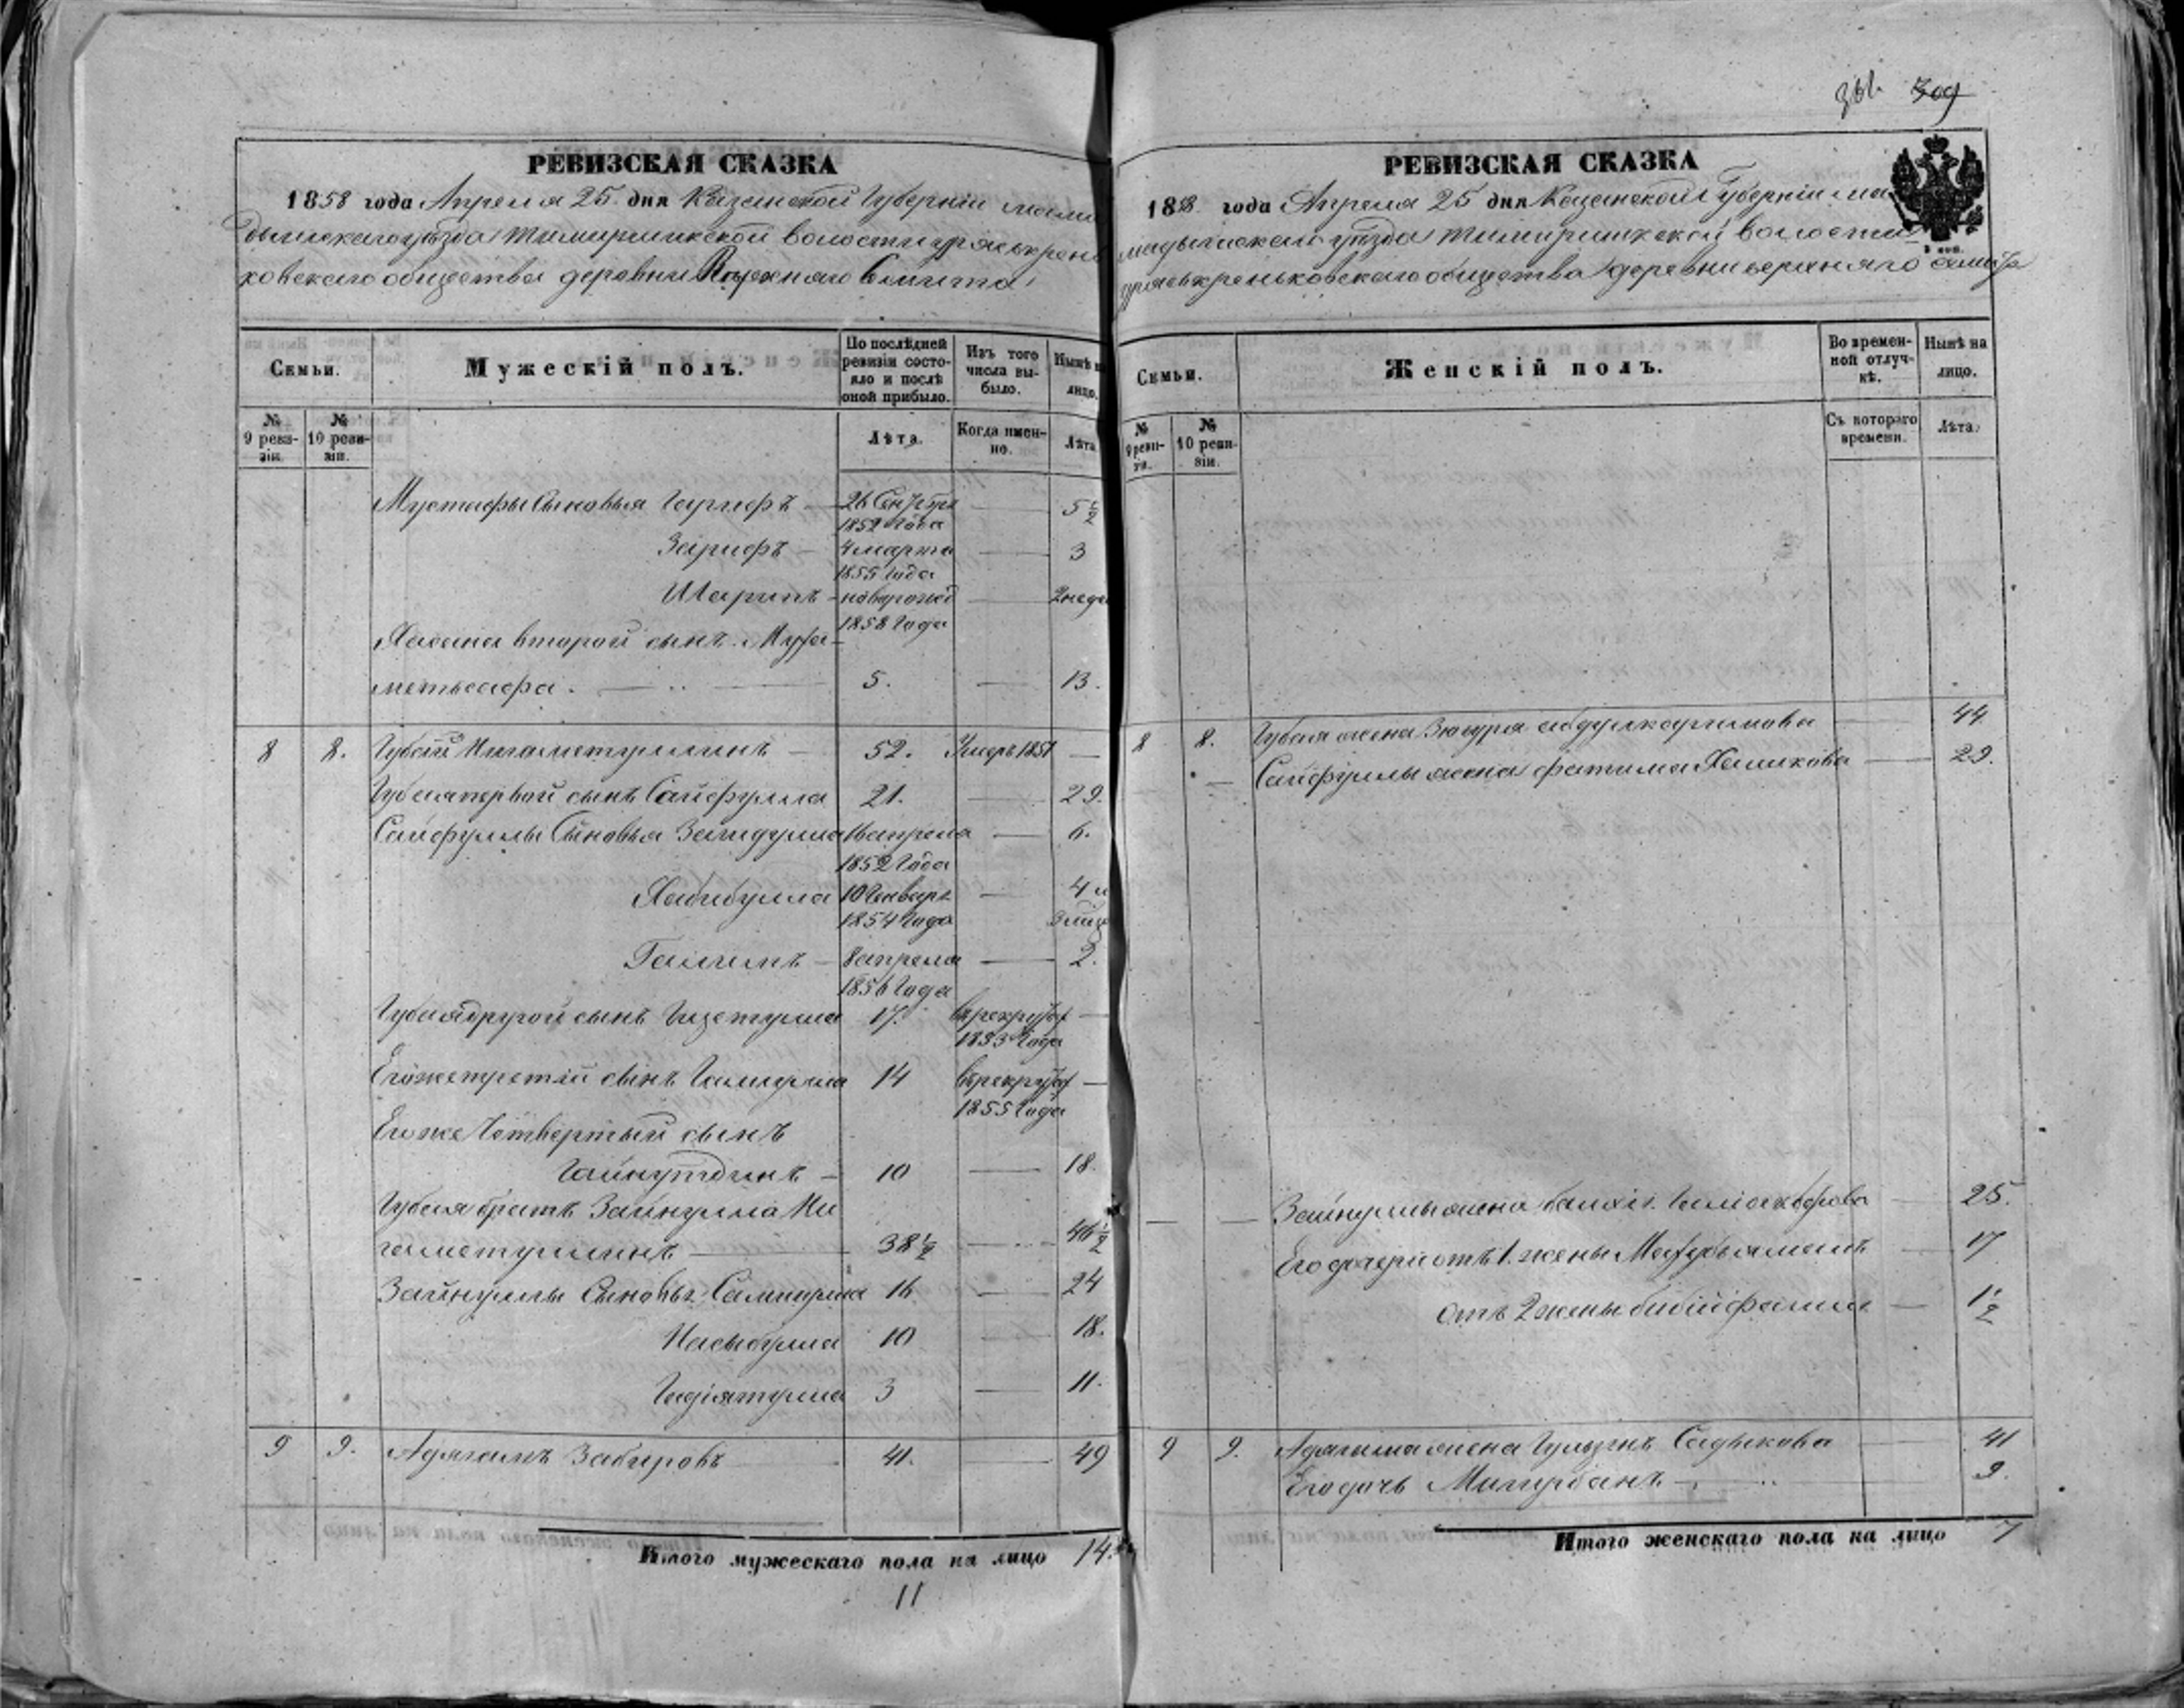 361. 309
РЕВИЗСКАЯ СКАЗКА
1858 года Апреля 25 дня Казанской Губерніи мама
дышскаго уѣзда
волости
ховскаго общества деревни Верхняго
Семьи.
Мужескій полъ.
По послѣдней ревизіи состояло и послѣ оной прибыло.
Изъ того числа выбыло.
Нынѣ на лицо.
№ 9 ревизіи.
№ 10 ревизіи.
Лѣта.
Когда именно.
Лѣта
Мустафы Сыновья Гарифъ — 26 Сентября 1852 года — 5 1/2
Зарифъ — 4 марта 1855 года — 3
Шарипъ — новорожд 1858 года — 2 неде
Хасана второй сынъ Муха-
метьсафа. — 5. — 13.
8 8. Губай Нигаметуллинъ — 52. Умеръ 1851 —
Губая первой сынъ Сайфулла 21. — 29.
Сайфуллы Сыновья Загидулла 16 апреля 1852 года — 6.
Хабибулла 10 Генваря 1854 года — 4 и 3 мѣся
Галимъ — 8 апреля 1856 года — 2.
Губая другой сынъ Гизетулла 17. в рекруты 1853 года —
Его же третій сынъ 14 в рекруты 1855 года —
Его же Четвертый сынъ
Гайнутдинъ — 10 — 18.
Губая братъ Зайнулла Ни
гаметуллинъ — 38 1/2 — 46 1/2
Зайнуллы Сыновья 16 — 24
Насыбулла 10 — 18.
Гадіятулла 3 — 11.
9 9. Адягамъ Забировъ 41. — 49
Итого мужескаго пола на лицо 14.
11
РЕВИЗСКАЯ СКАЗКА
1858 года Апреля 25 дня Казанской Губерніи ма
мадышскаго уѣзда волости
общества деревни верхняго
Семьи.
Женскій полъ.
Во временной отлучкѣ.
Нынѣ на лицо.
№ 9 ревизіи.
№ 10 ревизіи.
Съ котораго времени.
Лѣта.
8 8. Губая жена Зюгура абдулкаримова — 44
— Сайфуллы жена фатима Халикова — 29.
— — Зайнуллы жена — 25.
Его дочери отъ 1. жены — 17
отъ 2 жены — 1 1/2
9 9. Адягама жена Садыкова — 41
Его дочь — 9.
Итого женскаго пола на лицо 7